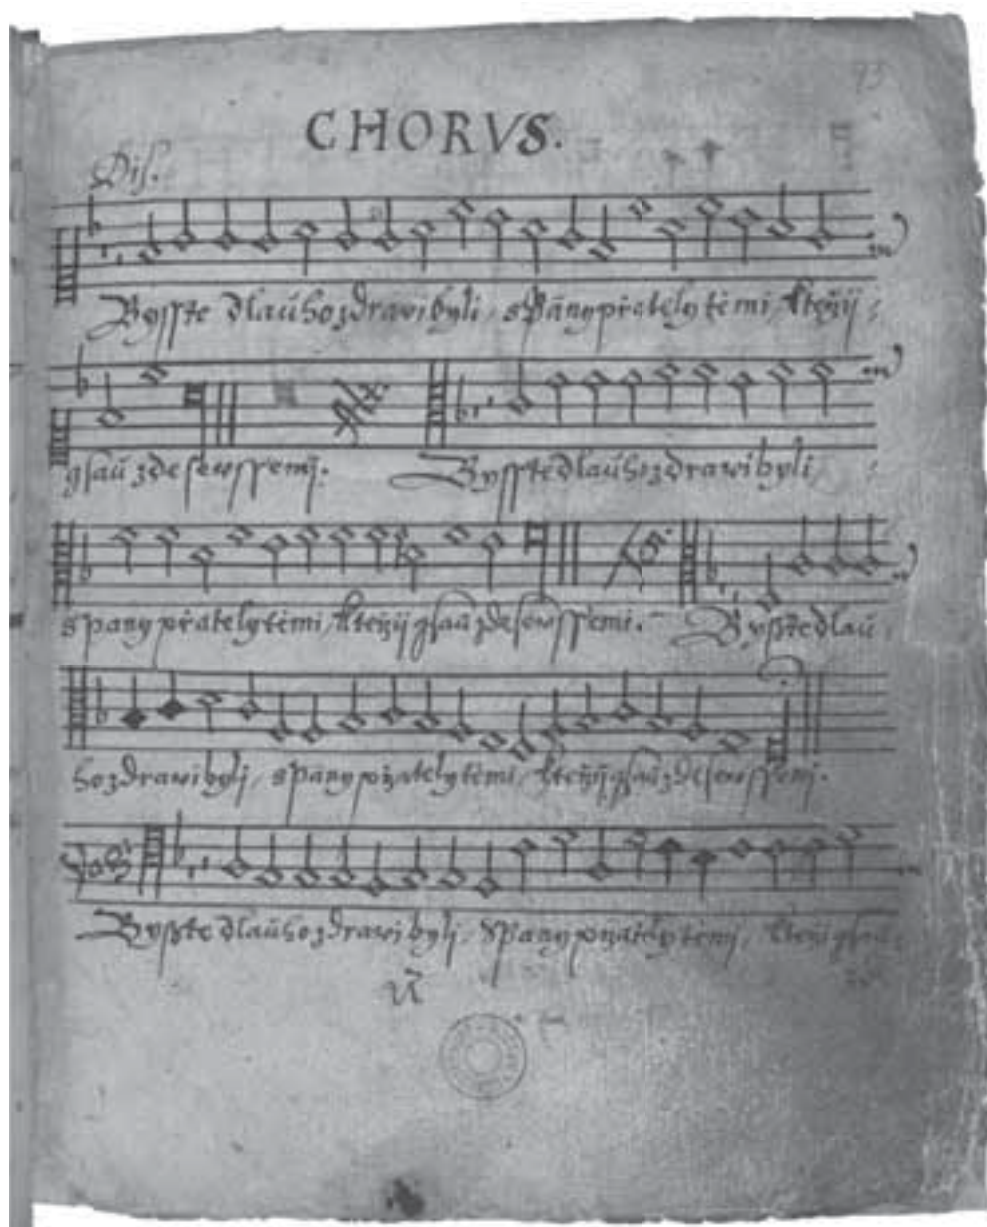 93
CHORVS.
Dis.
Bysste dlauho zdrawi byli, s Pany přately těmi, kteřij
gsau zde sewssemi. Bysste dlauho zdrawi byli,
s pany přately těmi, kteřij gsau zde sewssemi. Bysste dlau,
ho zdrawi byli, s pany přately těmi, kteřij gsau zde sewssemi.
Bysste dlauho zdrawi byli, s pany přately těmi, kteřij gsau